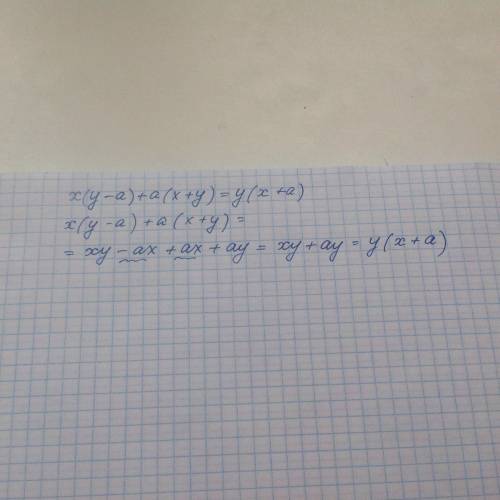 x(y-a)+a(x+y)=y(x+a)
x(y-a)+a(x+y)=
=xy-ax+ax+ay=xy+ay=y(x+a)